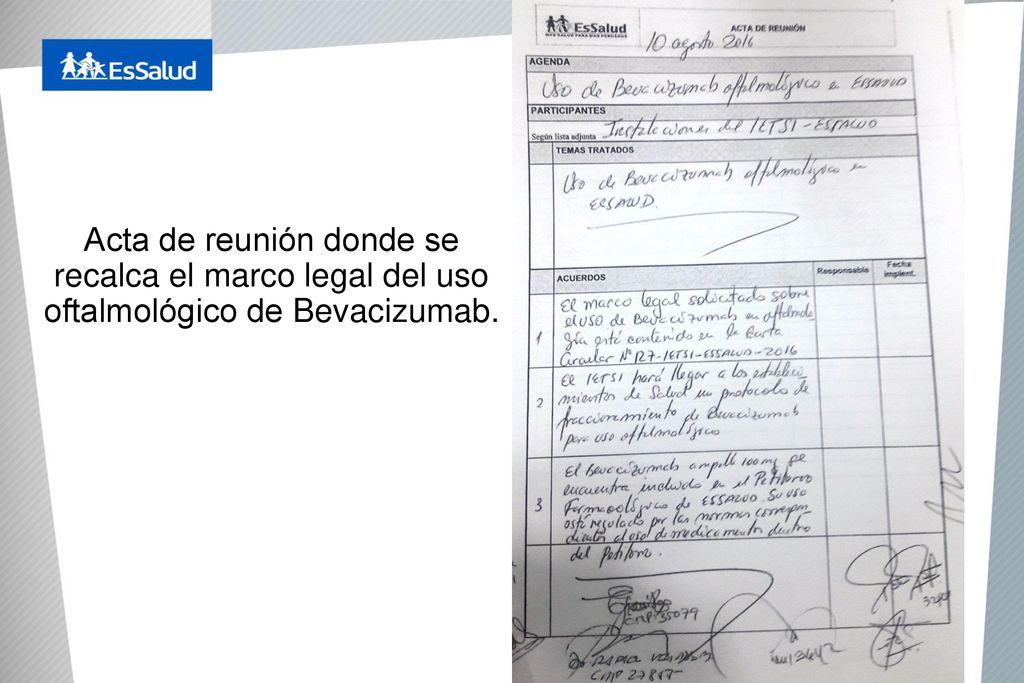 EsSalud
Acta de reunión donde se
recalca el marco legal del uso
oftalmológico de Bevacizumab.
EsSalud
MAS SALUD PARA MAS PERUANOS
ACTA DE REUNIÓN
10 agosto 2016
AGENDA
Uso de Bevacizumab oftalmológico en ESSALUD
PARTICIPANTES
Según lista adjunta Instalaciones del IETSI-ESSALUD
TEMAS TRATADOS
Uso de Bevacizumab oftalmológico en
ESSALUD.
ACUERDOS
Responsable
Fecha
implent.
1
El marco legal solicitado sobre
el uso de Bevacizumab en oftalmolo
gía está contenido en la Carta
Circular Nº 127-IETSI-ESSALUD-2016
2
El IETSI hará llegar a los estableci
mientos de Salud un protocolo de
fraccionamiento de Bevacizumab
para uso oftalmológico
3
El Bevacizumab ampolla 100mg se
encuentra incluido en el Petitorio
Farmacológico de ESSALUD. Su uso
está regulado por las normas correspon
dientes al uso de medicamentos dentro
del Petitorio.
CMP 35079